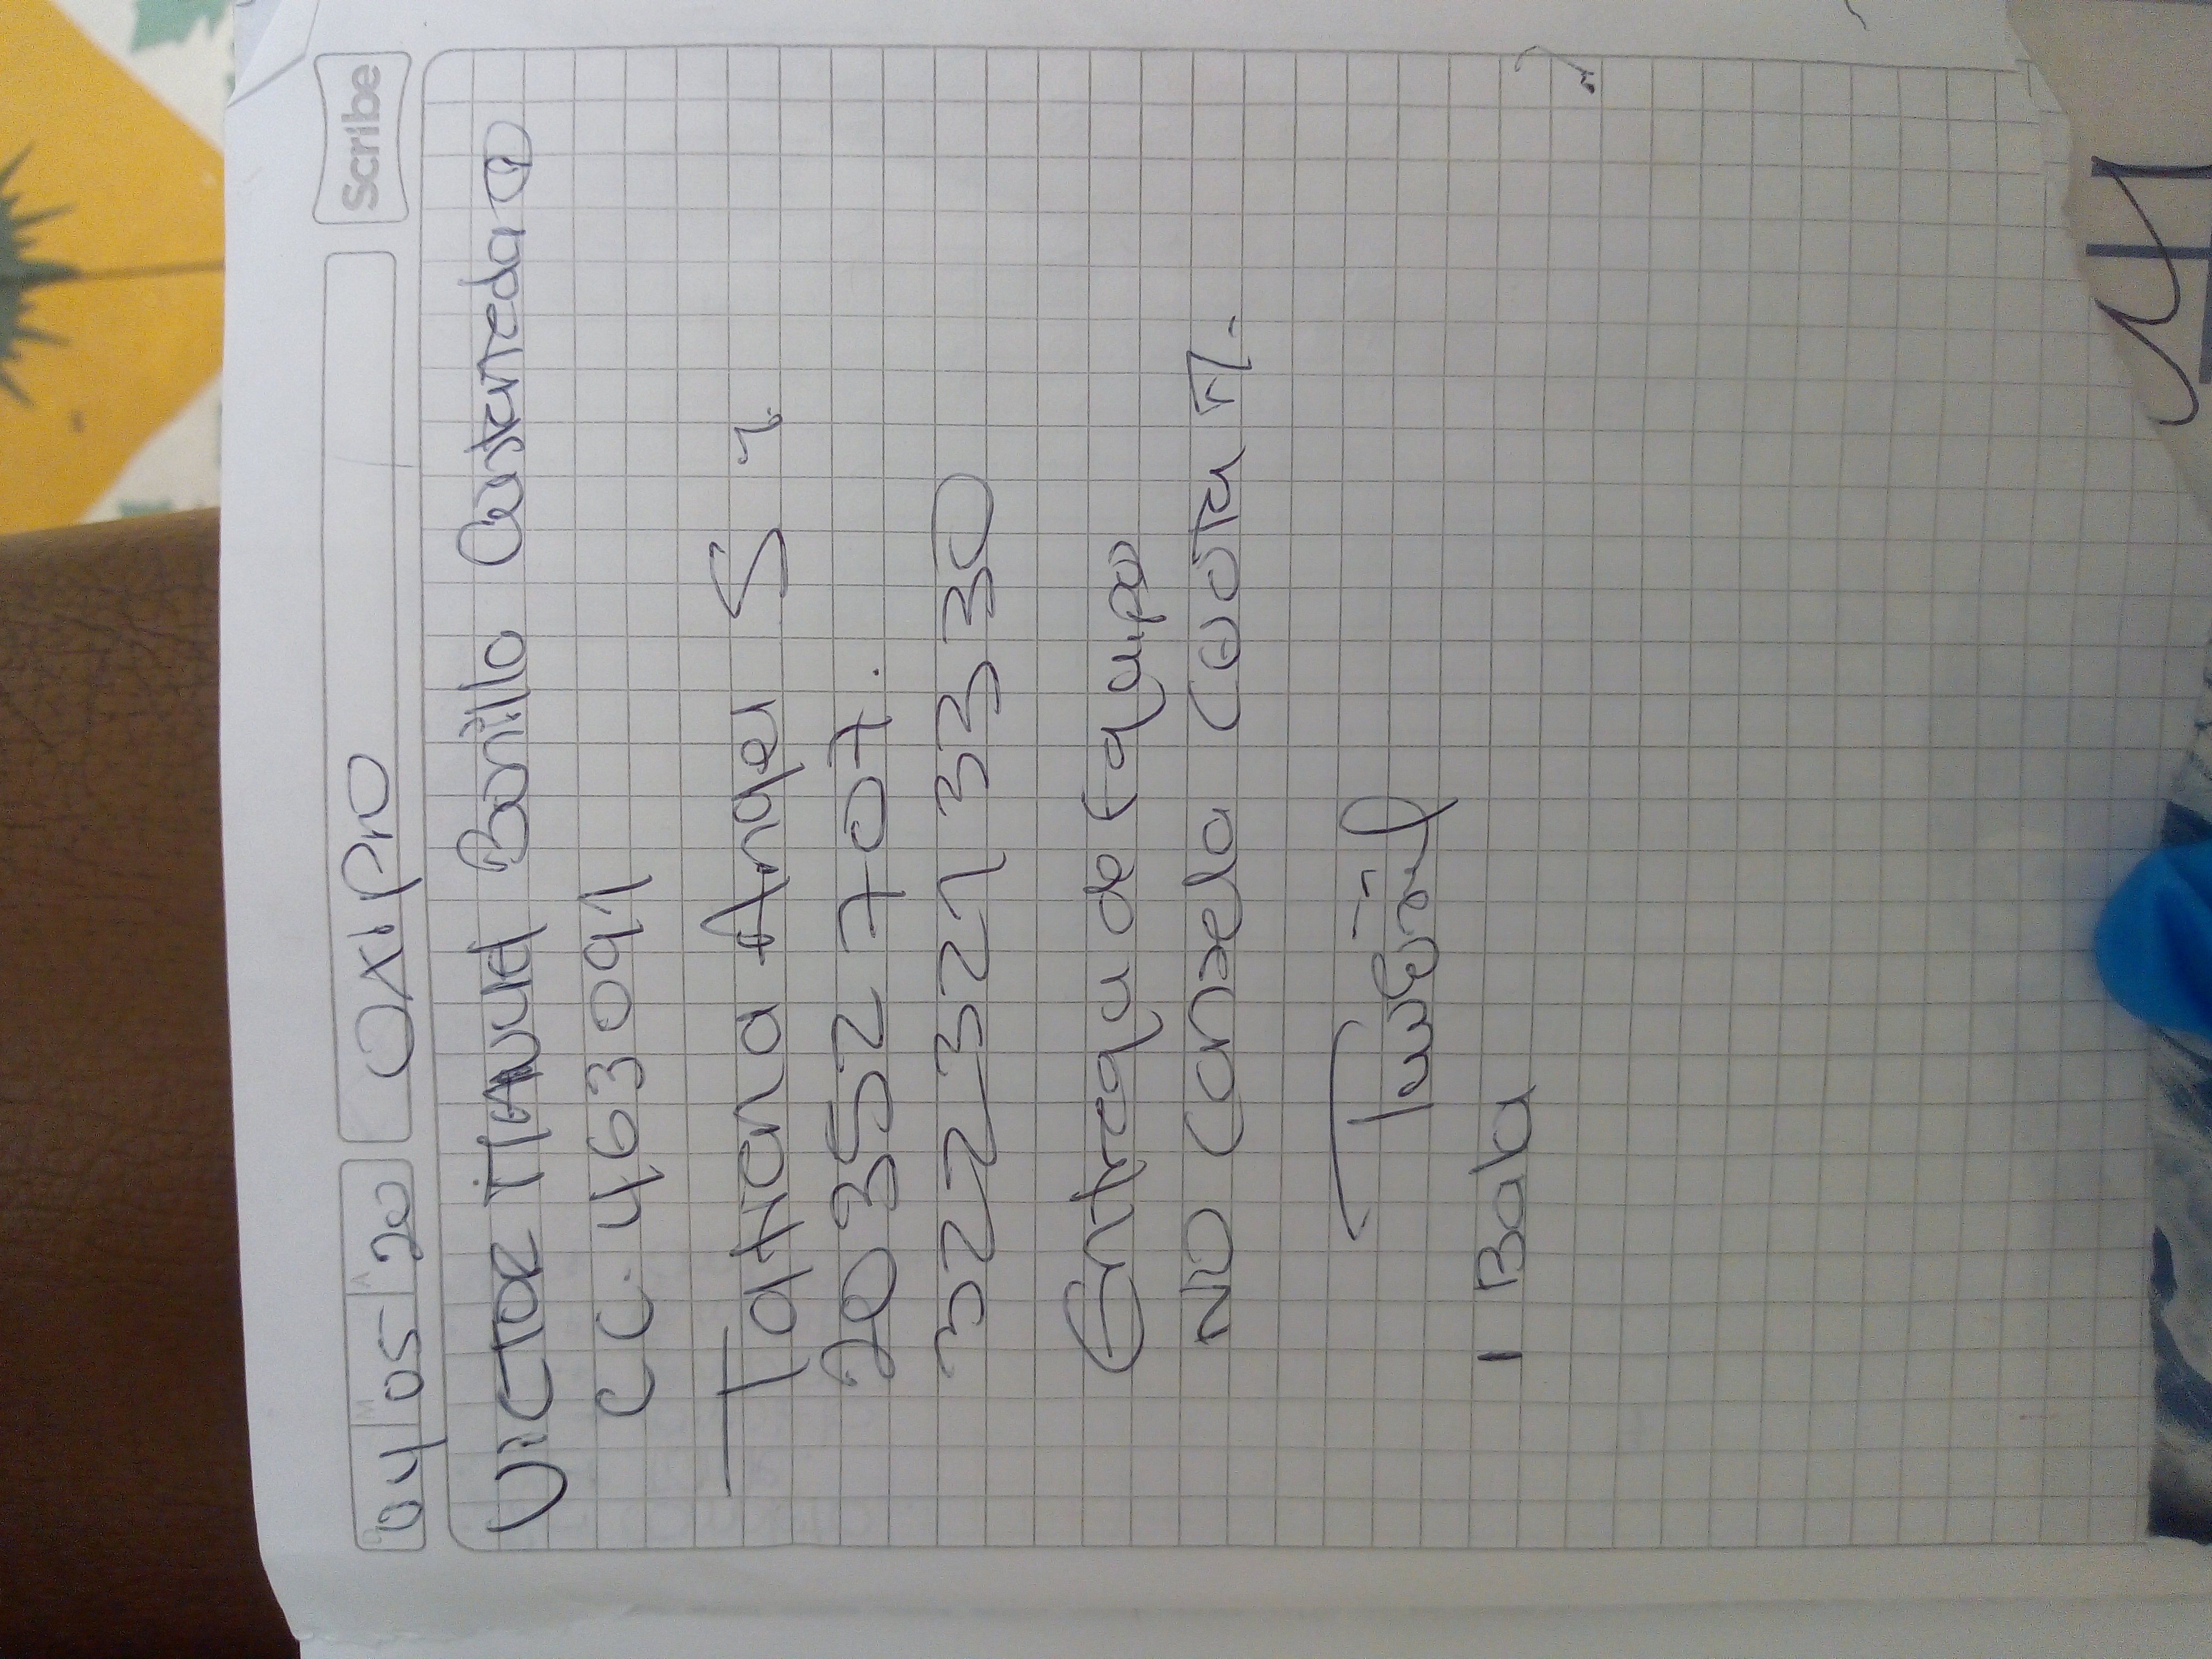 04 05 20 OXIPRO Scribe
VICTOR MANUEL Bonilla Castaneda
CC. 463091
Tatiana Angel S
20352707.
3223213330
Entrega de Equipo
NO Canzela Cuota M.
1 Bala